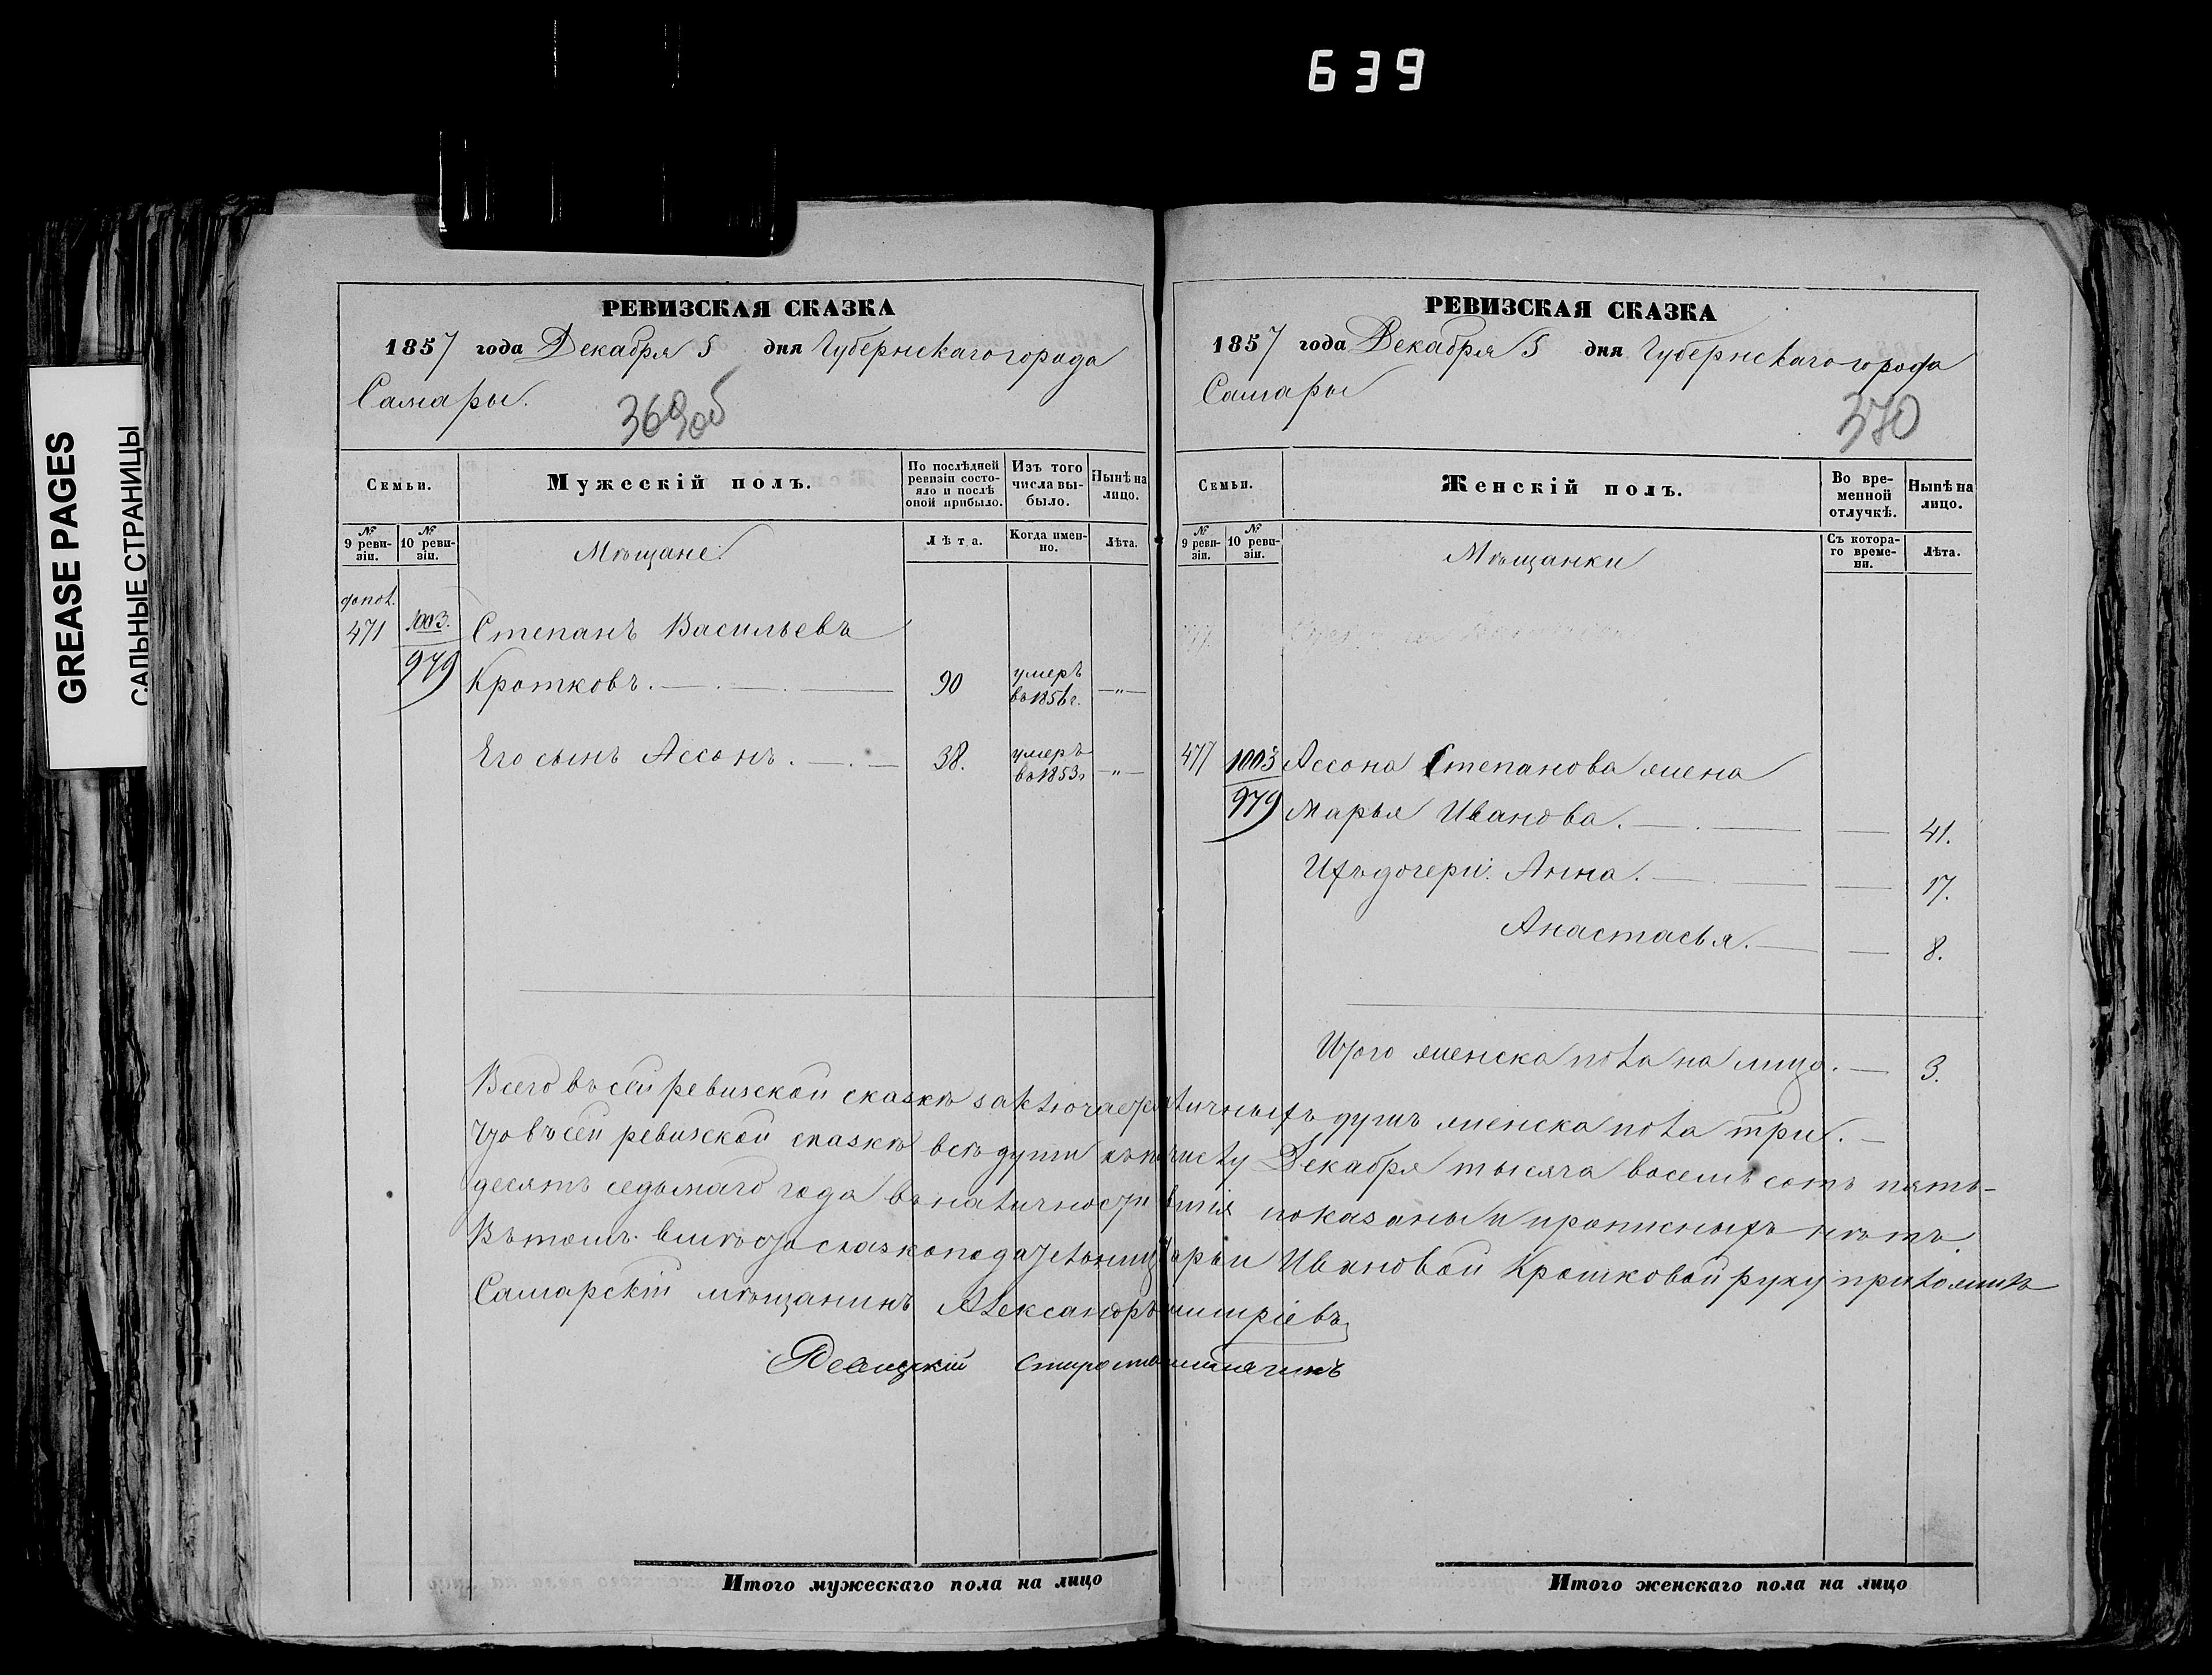 639
GREASE PAGES
САЛЬНЫЕ СТРАНИЦЫ
РЕВИЗСКАЯ СКАЗКА
1857 года Декабря 5 дня Губернскаго города
Самары.
369об
Семьи.
Мужескій полъ.
По послѣдней ревизіи состояло и послѣ оной прибыло.
Изъ того числа выбыло.
Нынѣ на лицо.
№ 9 ревизіи.
№ 10 ревизіи.
Мѣщане
Лѣта.
Когда именно.
Лѣта.
допол.
471 1003. Степанъ Васильевъ
979 Кротковъ. 90 умеръ въ 1856 г. —„—
Его сынъ Ассонъ. 38. умеръ въ 1853 г —„—
РЕВИЗСКАЯ СКАЗКА
1857 года Декабря 5 дня Губернскаго города
Самары
370
Семьи.
Женскій полъ.
Во временной отлучкѣ.
Нынѣ на лицо.
№ 9 ревизіи.
№ 10 ревизіи.
Мѣщанки
Съ котораго времени.
Лѣта.
477 1003 Ассона Степанова жена
979 Марья Иванова. — 41.
Ихъ дочери: Анна. — 17.
Анастасья. — 8.
Итого женска пола на лицо. — 3.
Всего въ сей ревизской сказкѣ заключается личныхъ душъ женска пола три. —
Что въ сей ревизской сказкѣ всѣ души къ числу Декабря тысяча восемь сотъ пять-
десятъ седьмаго года въ наличности показаны и прописныхъ нѣтъ.
Въ томъ вмѣсто сказкоподательницы Марьи Ивановой Кротковой руку приложилъ
Самарскій мѣщанинъ Александръ
Староста
Итого мужескаго пола на лицо
Итого женскаго пола на лицо